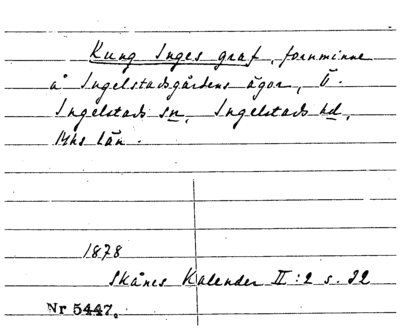 Kung Inges graf, fornminne
å Ingelstadsgårdens ägor, Ö.
Ingelstads sn, Ingelstads hd,
Mhs län.
1878
Skånes Kalender II:2 s. 32
Nr 5447.